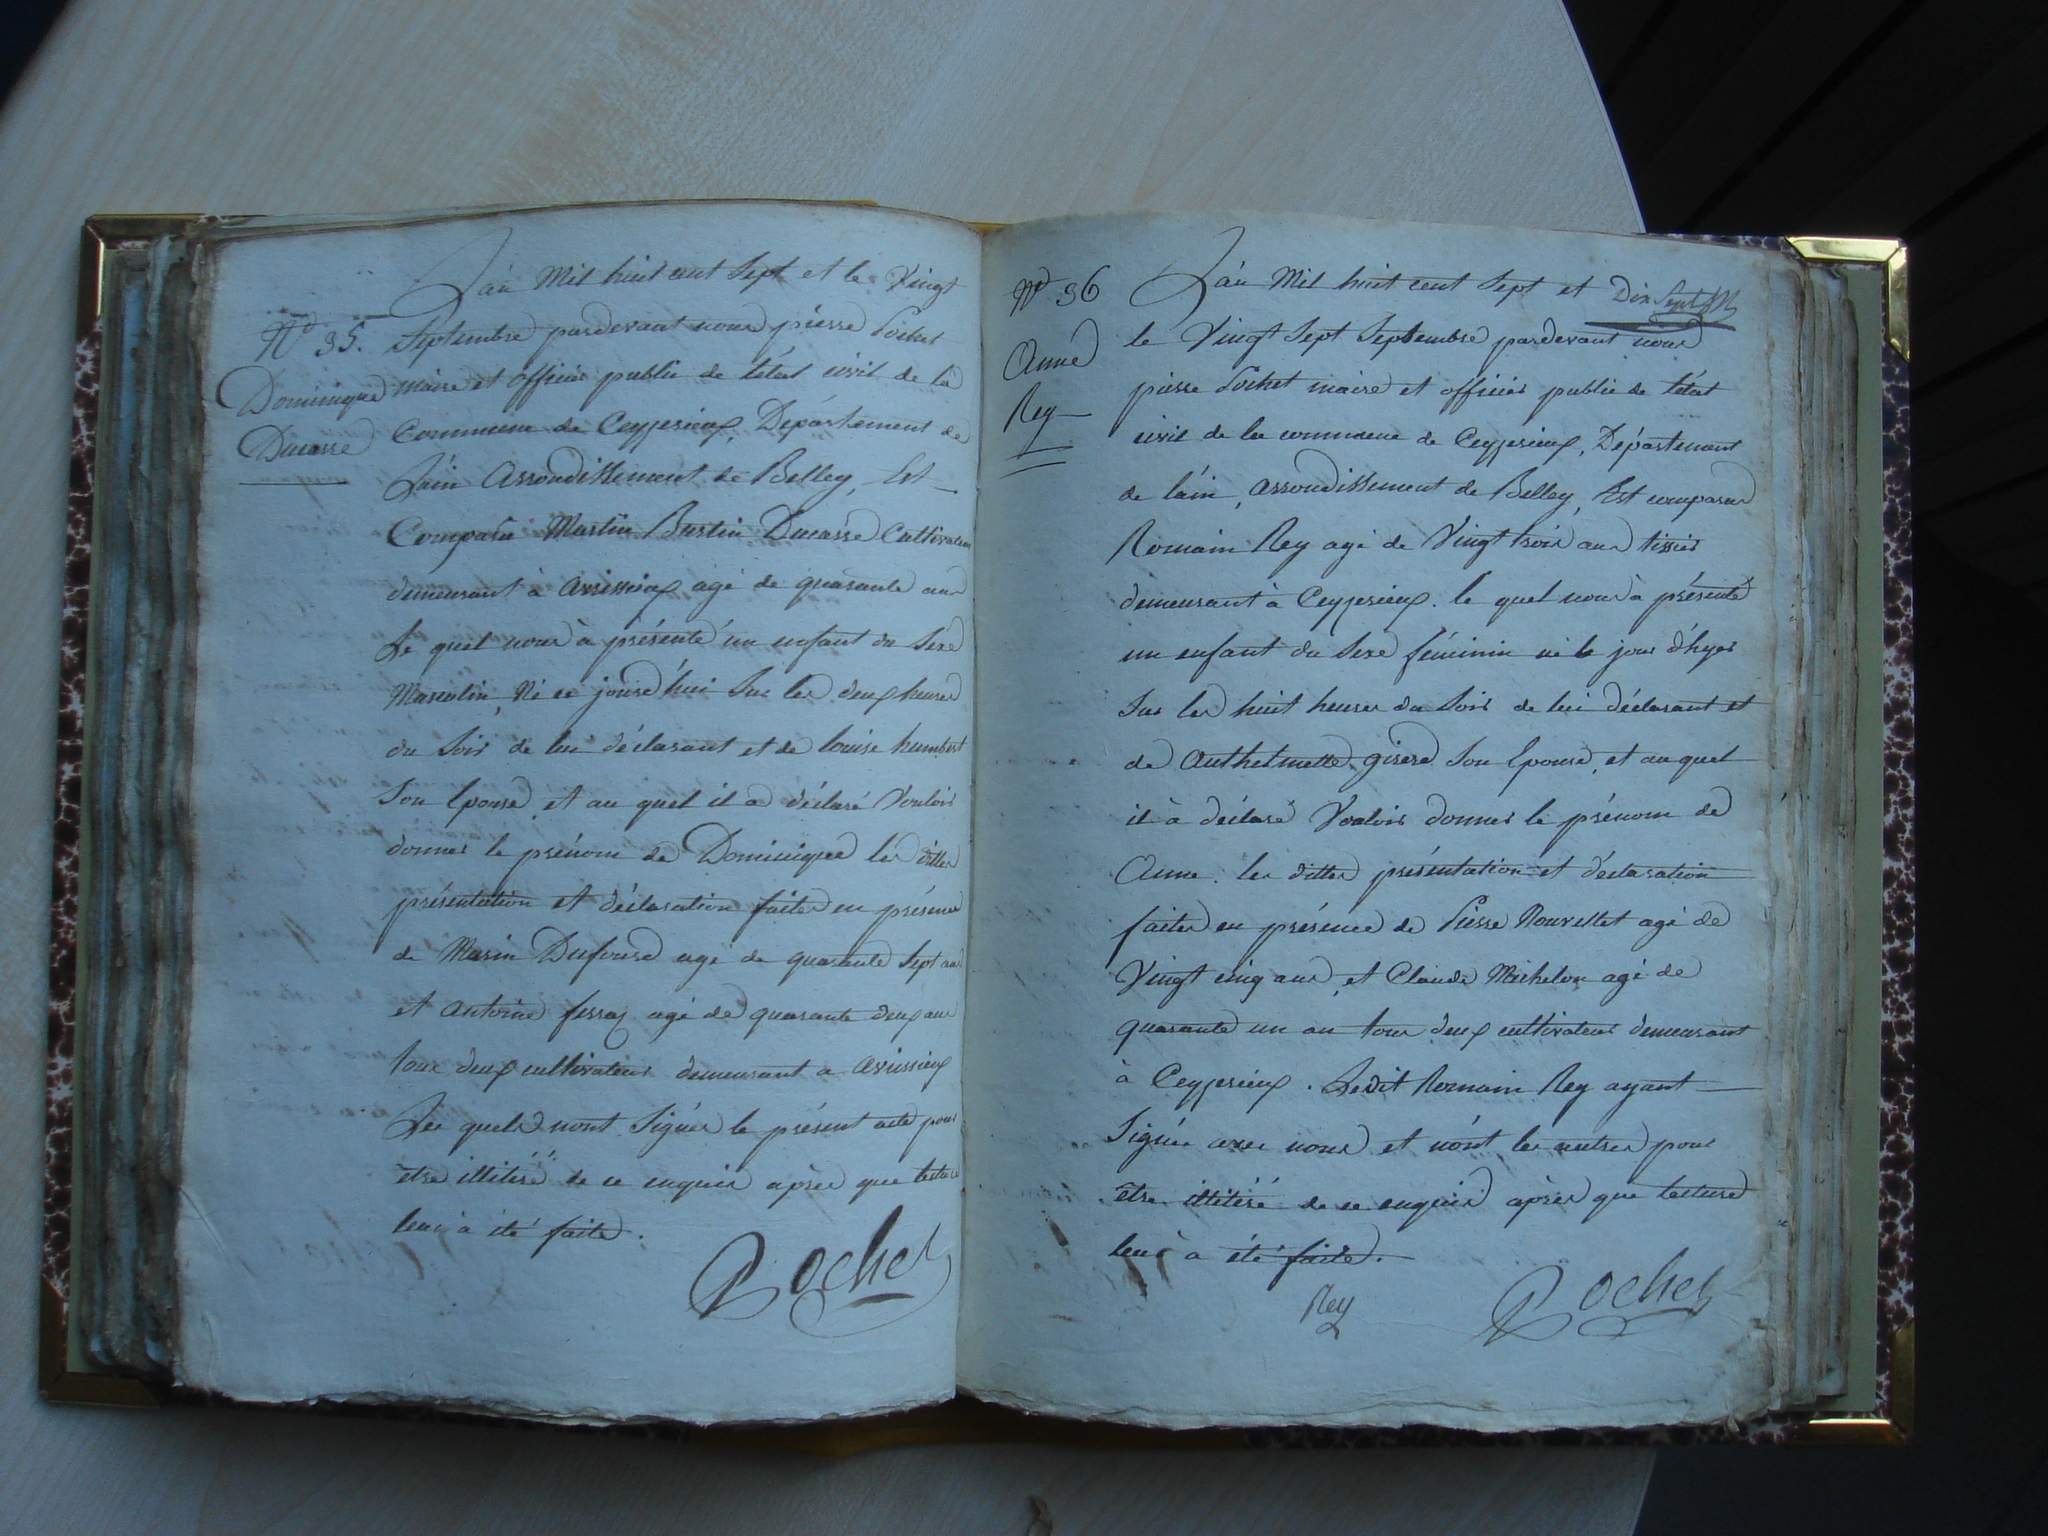 N.º 35.
Dominique
Ducasse
L'an Mil huit cent Sept et le Vingt
Septembre pardevant nous pierre Pochet
maire et officier public de l'état civil de la
Commune de Ceyzerieux, Département de
L'ain Arrondissement de Belley, Est
Comparu Martin Bustin Ducasse Cultivateur
demeurant à avissieux agé de quarante ans
Le quel nous à présenté un enfant du Sexe
Masculin, Né ce jourd'hui Sur les deux heures
du Soir de lui déclarant et de louise humbert
Son Epouse, et au quel il a déclaré Vouloir
donner le prénom de Dominique les dittes
présentation et déclaration faites en présence
de Marin Dufour agé de quarante Sept ans
et antoine ferraz agé de quarante deux ans
tous deux cultivateurs demeurant a avissieux
Les quels n'ont Signés le présent acte pour
être illitéré de ce enquis après que lecture
leur à été faite.
Pochet
N.º 36
Anne
Rey
L'an Mil huit cent Sept et
Dix Sept
le Vingt Sept Septembre pardevant nous
pierre Pochet maire et officier public de l'état
civil de la commune de Ceyzerieux, Département
de l'ain, arrondissement de Belley, Est comparu
Romain Rey agé de Vingt trois ans tissier
demeurant à Ceyzerieux. le quel nous à présenté
un enfant du Sexe féminin né le jour d'hyer
Sur les huit heures du Soir de lui déclarant et
de Anthelmette, girerd Son Epouse, et au quel
il à déclaré Vouloir donner le prénom de
Anne. les dittes présentation et déclaration
faites en présence de Pierre Rouvellet agé de
Vingt cinq ans, et Claude Michelon agé de
quarante un an tous deux cultivateurs demeurant
à Ceyzerieux. Ledit Romain Rey ayant
Signés avec nous et n'ont les autres pour
être illitéré de ce enquis après que lecture
leur à été faite.
Rey
Pochet